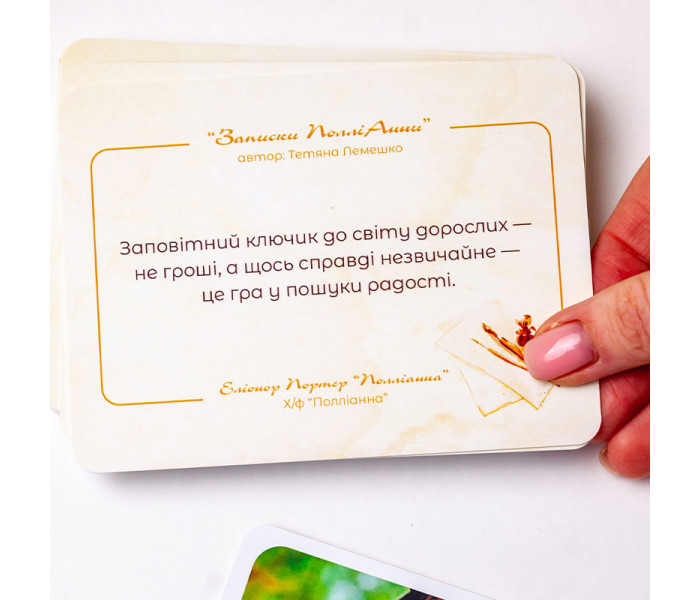 "Записки ПолліАнни"
автор: Тетяна Лемешко
Заповітний ключик до світу дорослих —
не гроші, а щось справді незвичайне —
це гра у пошуки радості.
Еліонор Портер "Полліанна"
Х/ф "Полліанна"